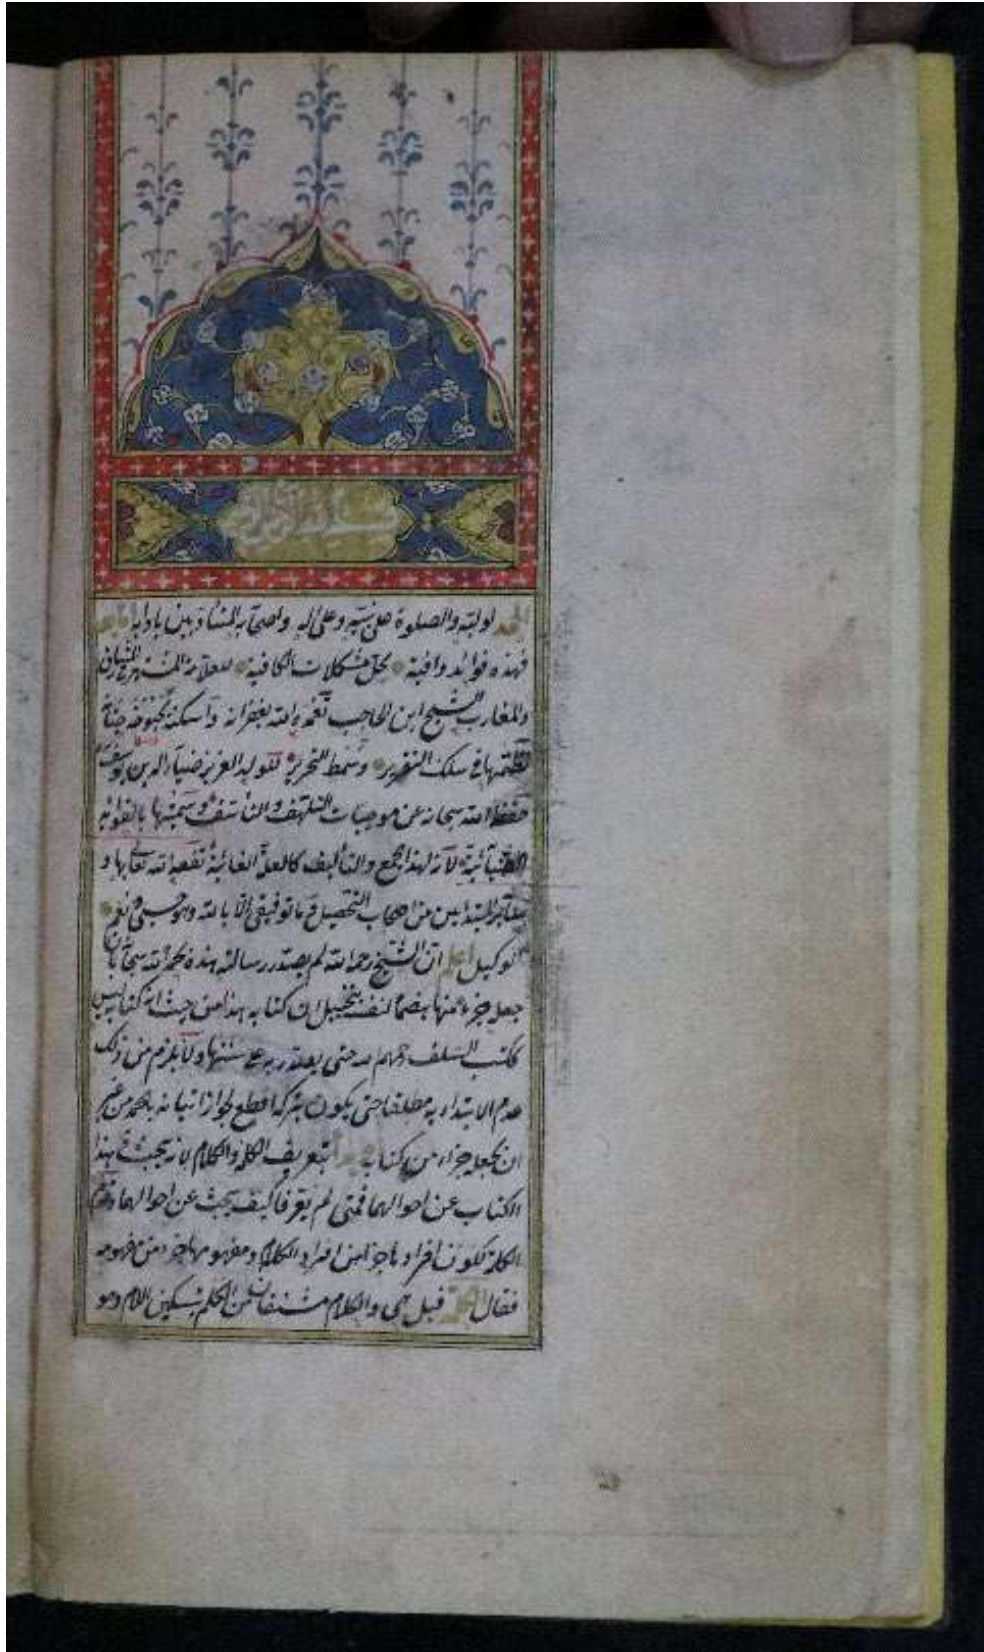 بسم الله الرحمن الرحيم
الحمد لوليه والصلوة على نبيه وعلى اله واصحابه المتأدبين بادابه اما بعد
فهذه فوائد وافية بحل مشكلات الكافية للعلامة المشتهر في المشارق
والمغارب الشيخ ابن الحاجب تغمده الله بغفرانه واسكنه بحبوحة جنانه
نظمتها في سلك التقرير وسمط التحرير للولد العزيز ضياء الدين يوسف
حفظه الله سبحانه عن موجبات التلهف والتأسف وسميتها بالفوائد
الضيائية لانه لهذا الجمع والتأليف كالعلة الغائية نفعه الله تعالى بها و
سائر المبتدئين من اصحاب التحصيل وما توفيقي الا بالله وهو حسبي ونعم
الوكيل اعلم ان الشيخ رحمه الله لم يصدر رسالته هذه بحمد الله سبحانه بان
جعله جزء منها هضما لنفسه بتخييل ان كتابه هذا من حيث انه كتابه ليس
ككتب السلف رحمهم الله حتى يصدر به على سننها ولا يلزم من ذلك
عدم الابتداء به مطلقا حتى يكون بتركه اقطع لجواز اتيانه بالحمد من غير
ان يجعله جزء من كتابه بتعريف الكلمة والكلام لانه يبحث في هذا
الكتاب عن احوالهما فمتى لم يعرفا كيف يبحث عن احوالهما وقدم
الكلمة لكون افرادها جزأ من افراد الكلام ومفهومها جزء من مفهومه
فقال الكلمة قيل هي والكلام مشتقان من الكلم بتسكين اللام وهو